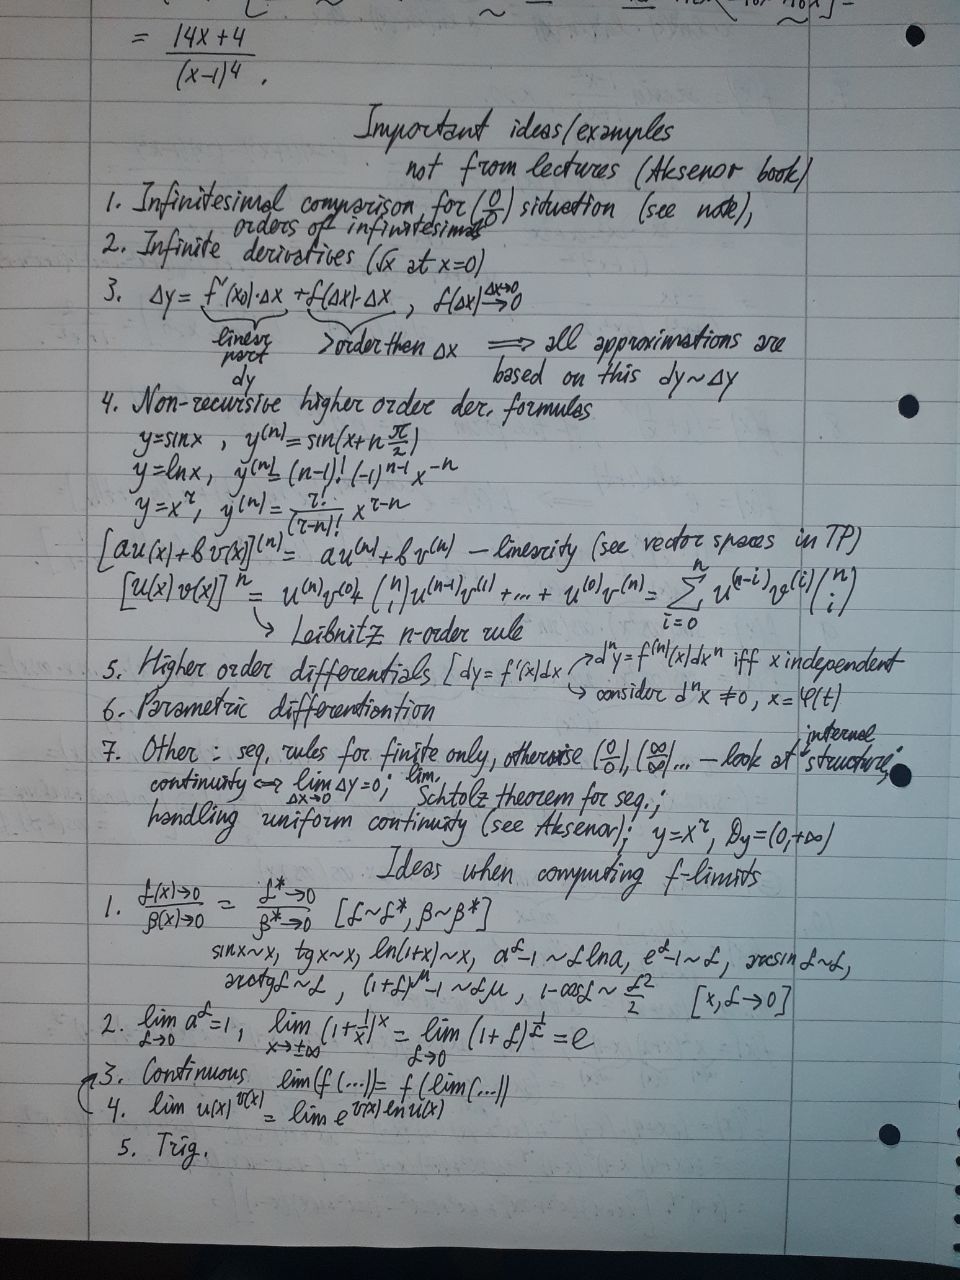 = (14x+4)/(x-1)⁴ .
Important ideas/examples
not from lectures (Aksenor book)
1. Infinitesimal comparison for (0/0) situation (see note),
orders of infinitesimals
2. Infinite derivatives (√x at x=0)
3. Δy = f'(x₀)·Δx + £(Δx)·Δx , £(Δx) →0 (Δx→0)
linear part dy >order then Δx ⟹ all approximations are
based on this dy~Δy
4. Non-recursive higher order der. formulas
y=sinx , y⁽ⁿ⁾= sin(x+n π/2)
y=lnx, y⁽ⁿ⁾= (n-1)! (-1)ⁿ⁻¹ x⁻ⁿ
y=xʳ, y⁽ⁿ⁾= r!/(r-n)! xʳ⁻ⁿ
[au(x)+bv(x)]⁽ⁿ⁾= au⁽ⁿ⁾+bv⁽ⁿ⁾ – linearity (see vector spaces in TP)
[u(x)v(x)]ⁿ = u⁽ⁿ⁾v⁽⁰⁾+ (n 1)u⁽ⁿ⁻¹⁾v⁽¹⁾ + ... + u⁽⁰⁾v⁽ⁿ⁾ = Σ_{i=0}^{n} u⁽ⁿ⁻ⁱ⁾v⁽ⁱ⁾(n i)
↳ Leibnitz n-order rule
5. Higher order differentials [dy=f'(x)dx ↗ dⁿy=f⁽ⁿ⁾(x)dxⁿ iff x independent
↳ consider dⁿx ≠0, x=φ(t)
6. Parametric differentiontion
7. Other: seq. rules for finite only, otherwise (0/0), (∞/∞)... – look at internal structure;
continuity ⟺ lim_{Δx→0} Δy=0; lim. Schtolz theorem for seq.;
handling uniform continuity (see Aksenor); y=xʳ, Dy=(0,+∞)
Ideas when computing f-limits
1. £(x)→0/β(x)→0 = £*→0/β*→0 [£~£*, β~β*]
sinx~x, tgx~x, ln(1+x)~x, a^£-1 ~£lna, e^£-1~£, arcsin£~£,
arctg£~£, (1+£)^μ-1 ~£μ, 1-cos£~ £²/2 [x,£→0]
2. lim_{£→0} a^£=1, lim_{x→±∞} (1+1/x)ˣ = lim_{£→0} (1+£)^{1/£} = e
3. Continuous lim(f(...))= f(lim(...))
4. lim u(x)^{v(x)} = lim e^{v(x)lnu(x)}
5. Trig.